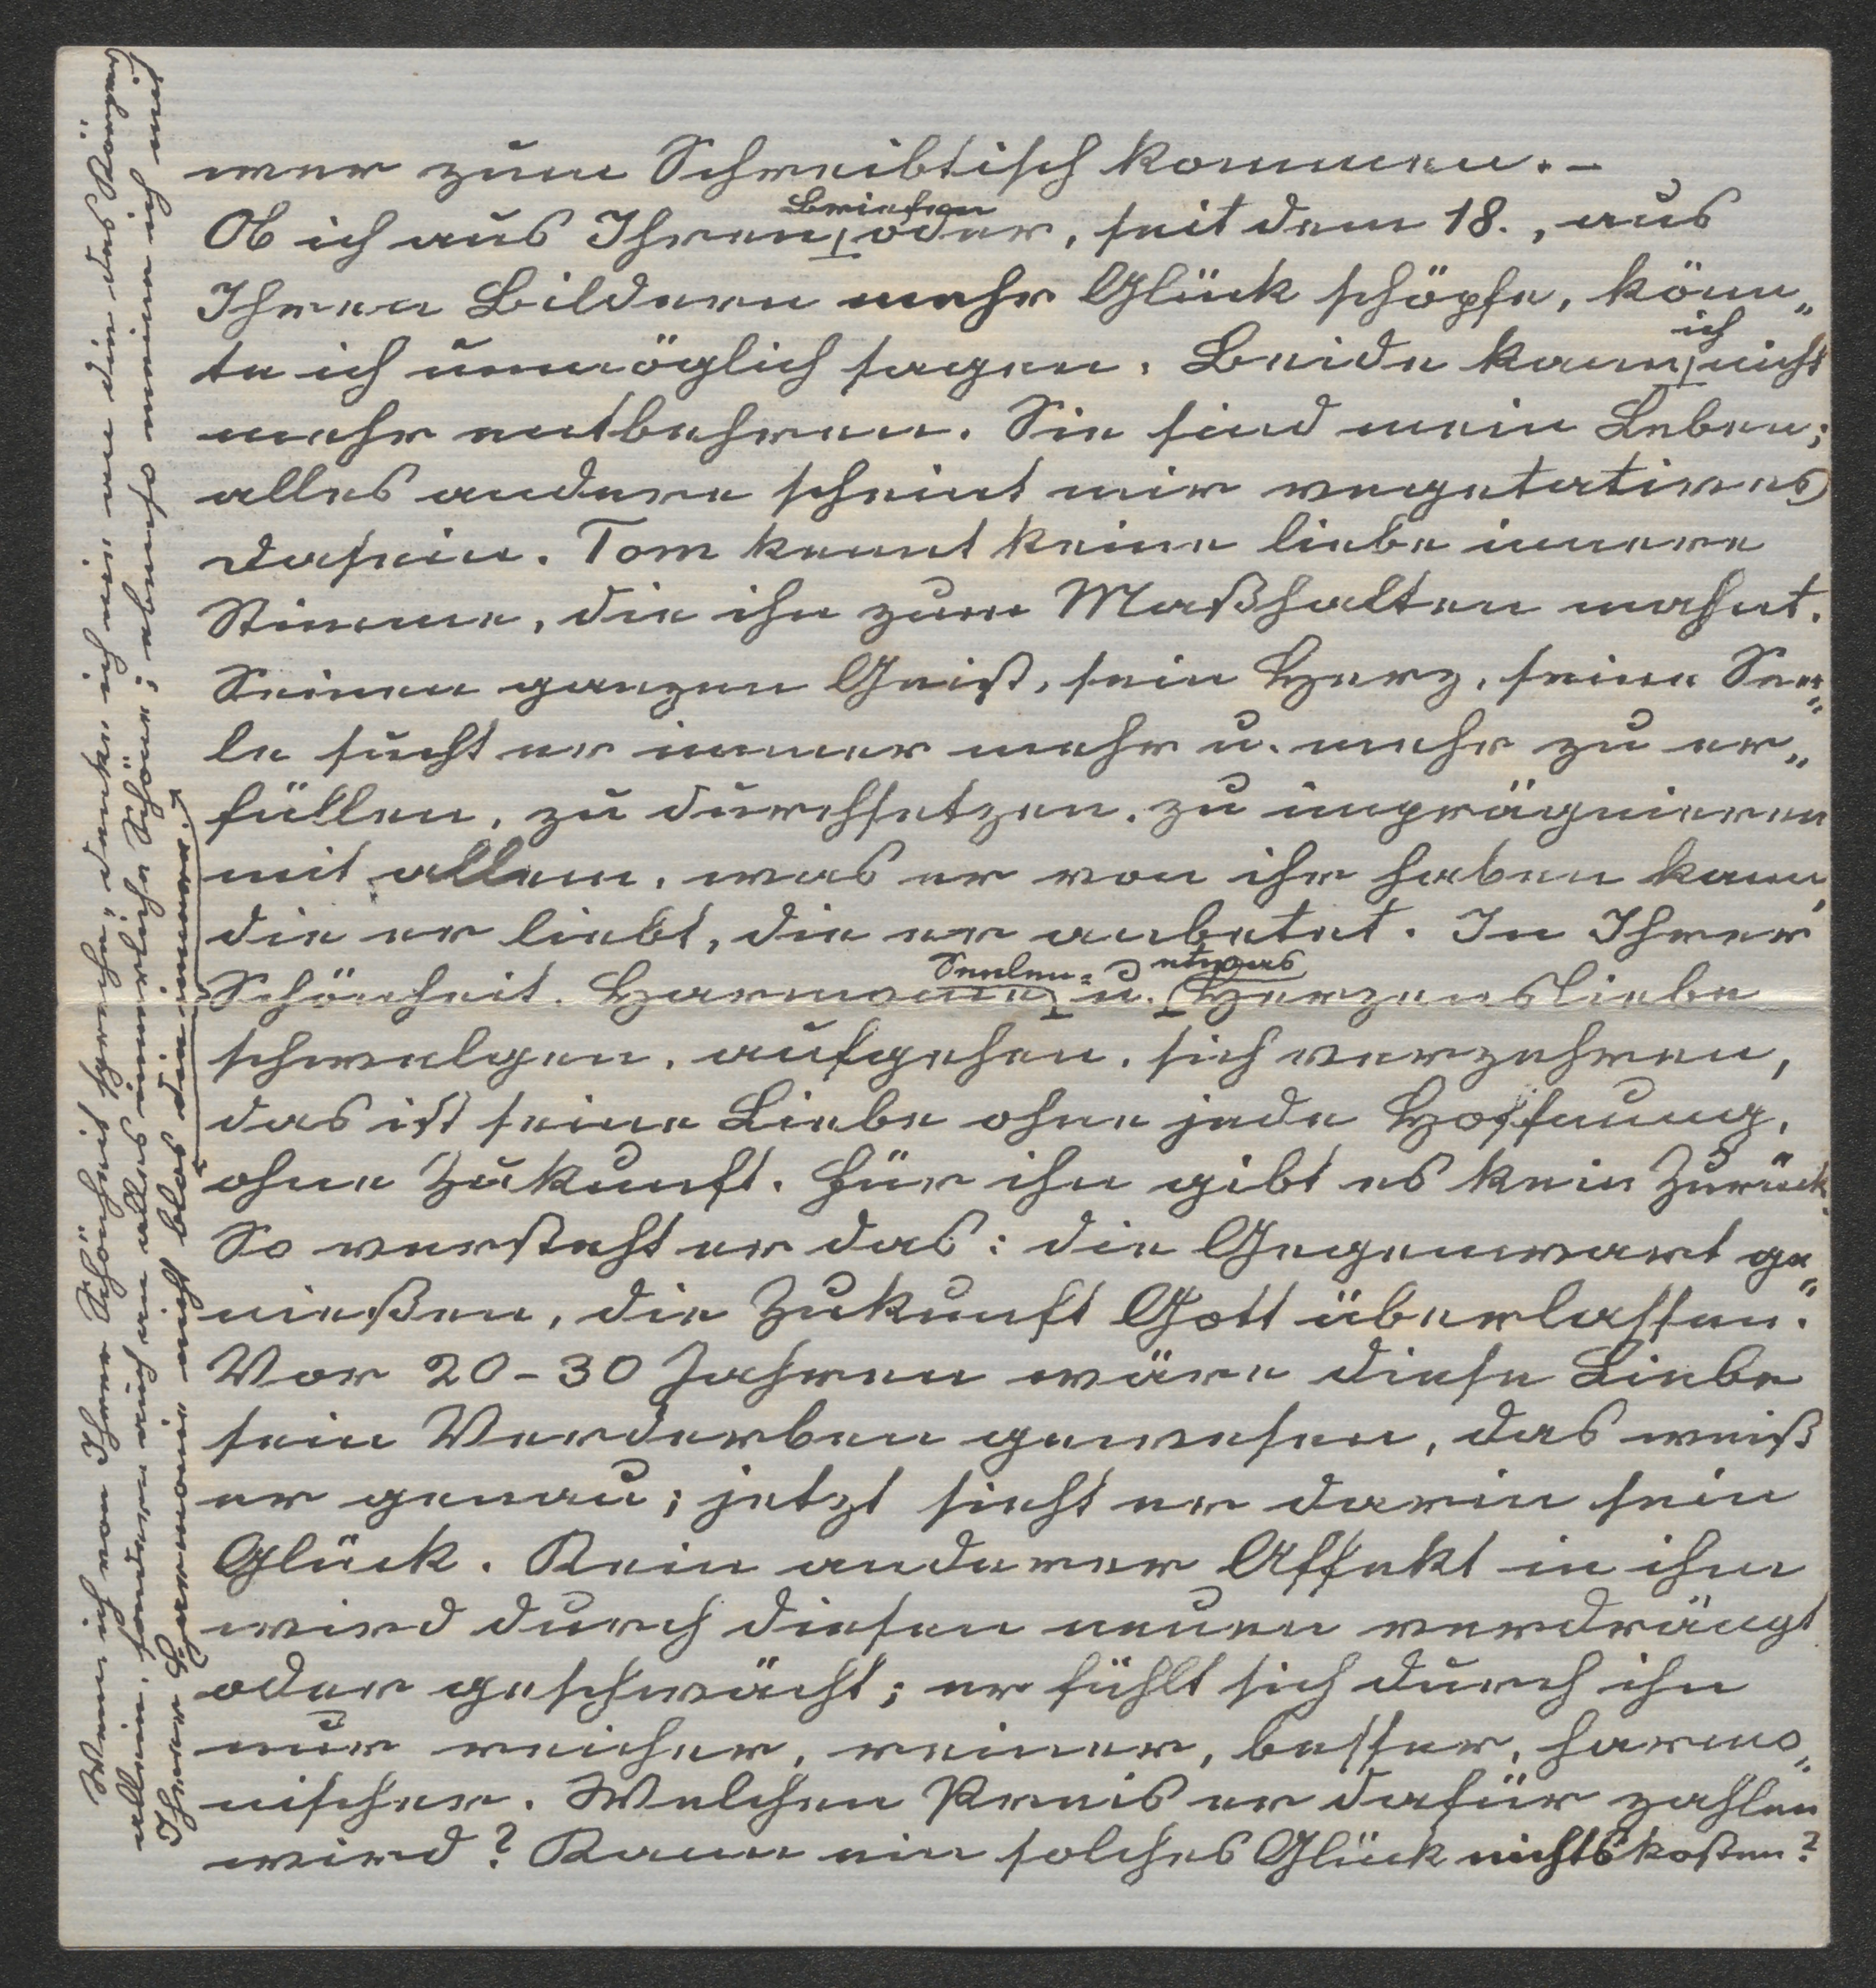 wer zum Schreibtisch kommen. –
Ob ich aus Ihren Briefen oder, seit dem 18., aus
Ihren Bildern mehr Glück schöpfe, könn„
te ich unmöglich sagen. Beide kann ich nicht
mehr entbehren. Sie sind mein Leben;
alles andere scheint mir vegetatives
Dasein. Tom kennt keine liebe innere
Stimme, die ihn zum Maßhalten mahnt.
Seinen ganzen Geist, sein Herz, seine See„
le sucht er immer mehr u. mehr zu er„
füllen, zu durchsetzen, zu imprägnieren
mit allem, was er von ihr haben kann,
die er liebt, die er anbetet. In Ihrer
Schönheit, Harmonie, Seelen= u. etwas Herzensliebe
schwelgen, aufgehen, sich verzehren,
das ist seine Liebe ohne jede Hoffnung,
ohne Zukunft. Für ihn gibt es kein Zurück.
So versteht er das: die Gegenwart ge„
nießen, die Zukunft Gott überlassen."
Vor 20–30 Jahren wäre diese Liebe
sein Verderben gewesen, das weiß
er genau; jetzt sieht er darin sein
Glück. Kein anderer Affekt in ihm
wird durch diesen neuen verdrängt
oder geschwächt; er fühlt sich durch ihn
nur reicher, reiner, besser, harmo„
nischer. Welchen Preis er dafür zahlen
wird? Kann ein solches Glück nichts kosten?
Wenn ich von Ihrer Schönheit spreche, denke ich nie an die des Körpers
allein, sondern auch an alles innerliche Schöne; ebenso meine ich mit
Ihrer Harmonie nicht blos die innere.